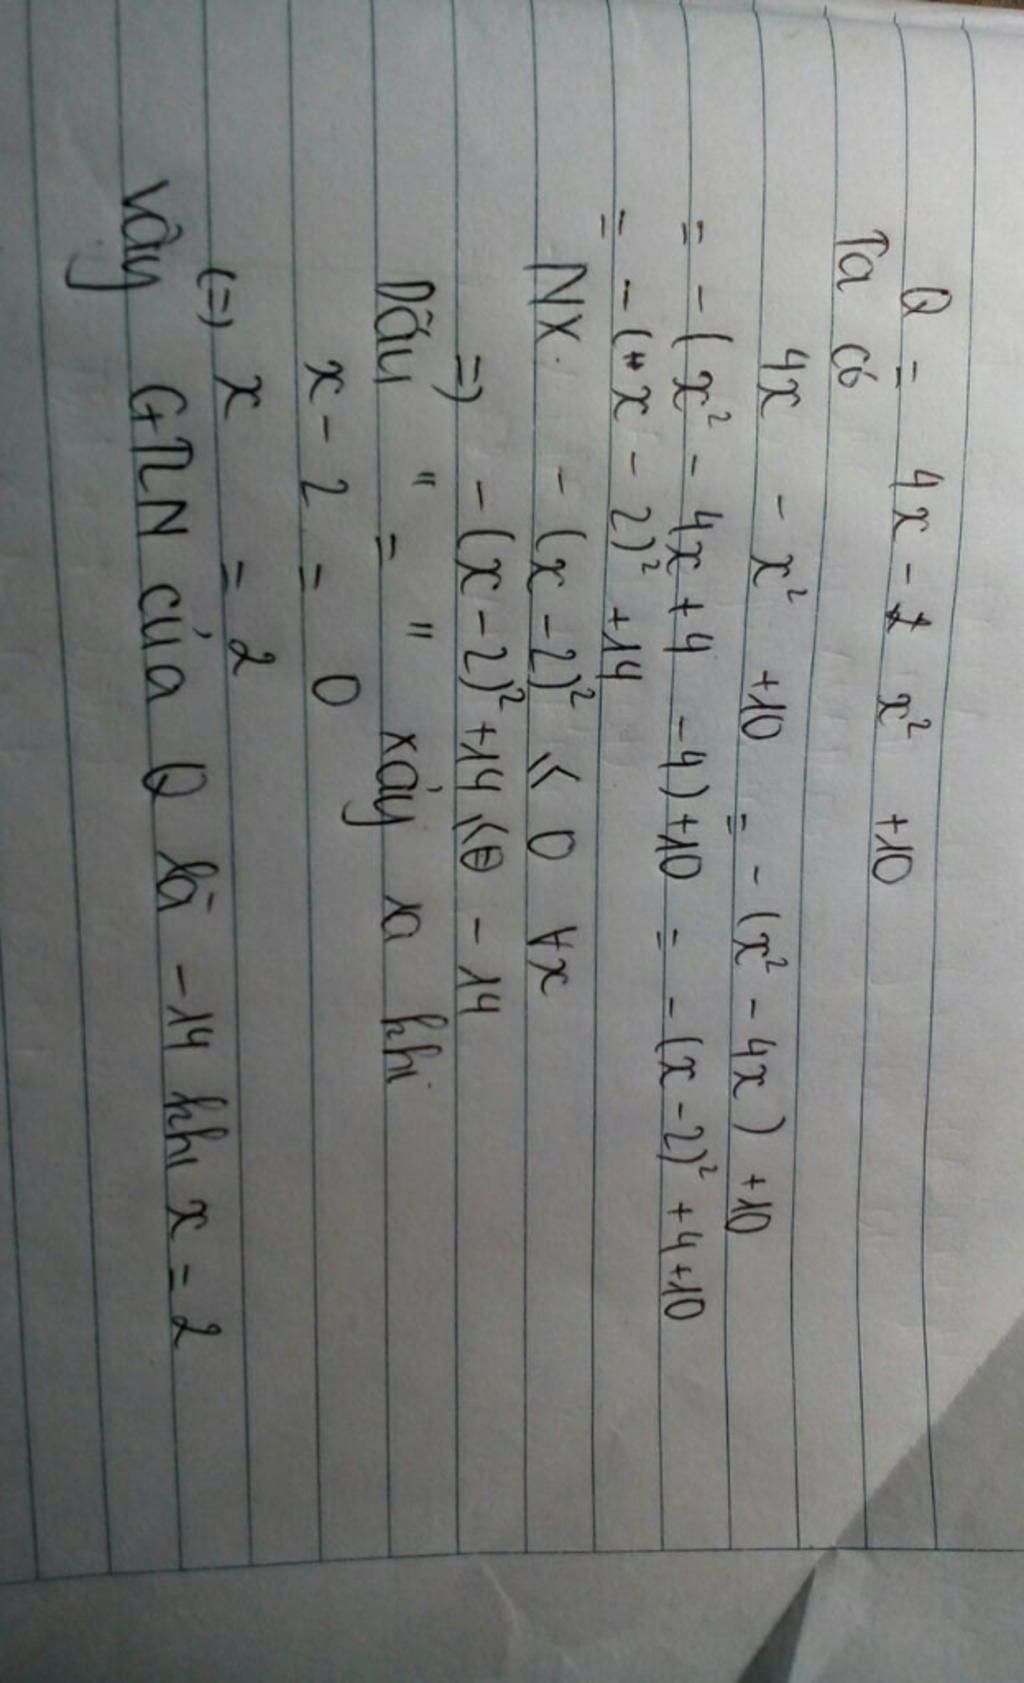 Q = 4x - x² +10
Ta có
4x - x² +10 = - (x² - 4x) +10
= - (x² - 4x +4 -4) +10 = - (x-2)² +4+10
= - (x - 2)² +14
NX. - (x-2)² ≤ 0 ∀x
=) - (x-2)² +14 ≤ - 14
Dấu " = " xảy ra khi
x - 2 = 0
(=) x = 2
Vậy GTLN của Q là -14 khi x = 2